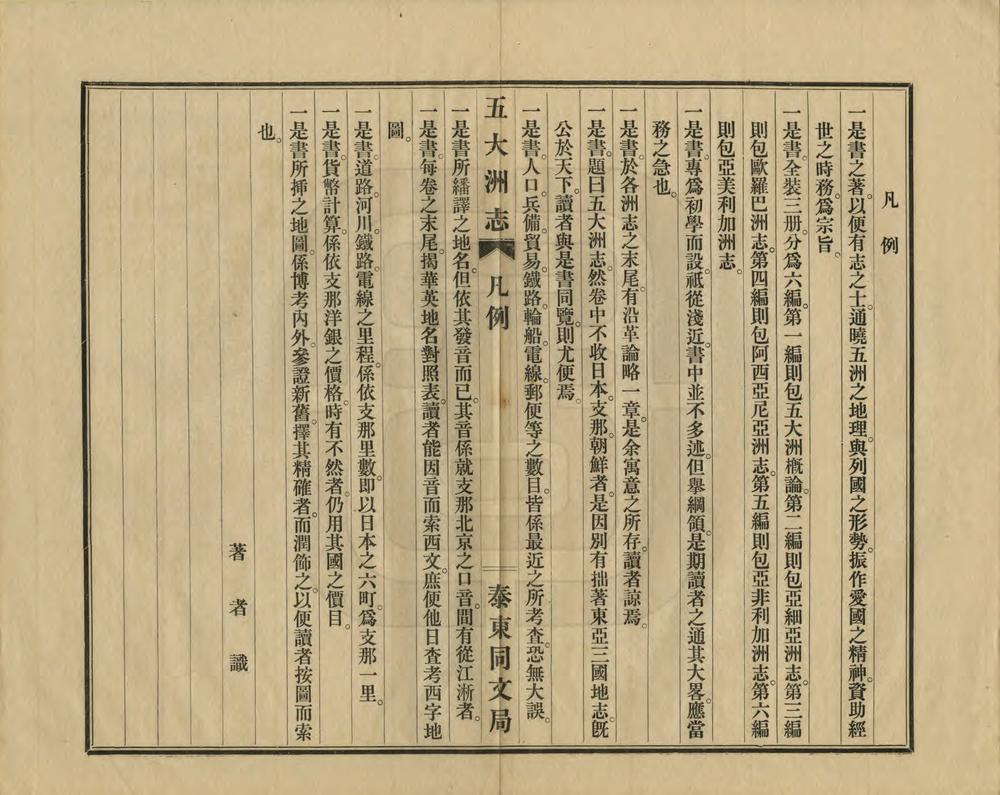 凡例
一是書之著。以便有志之士。通曉五洲之地理。與列國之形勢。振作愛國之精神。資助經
世之時務。爲宗旨。
一是書。全裝三册。分爲六編。第一編則包五大洲概論。第二編則包亞細亞洲志。第三編
則包歐羅巴洲志。第四編則包阿西亞尼亞洲志。第五編則包亞非利加洲志。第六編
則包亞美利加洲志。
一是書。專爲初學而設。祗從淺近。書中並不多述。但舉綱領。是期讀者之通其大畧。應當
務之急也。
一是書。於各洲志之末尾。有沿革論略一章。是余寓意之所存。讀者諒焉。
一是書。題曰五大洲志。然卷中不收日本。支那。朝鮮者。是因別有拙著東亞三國地志。既
公於天下。讀者與是書同覽。則尤便焉。
一是書。人口。兵備。貿易。鐵路。輪船。電線。郵便等之數目。皆係最近之所考查。恐無大誤。
五大洲志 凡例 泰東同文局
一是書所繙譯之地名。但依其發音而已。其音係就支那北京之口音。間有從江淅者。
一是書。每卷之末尾。揭華英地名對照表。讀者能因音而索西文。庶便他日查考西字地
圖。
一是書。道路。河川。鐵路。電線之里程。係依支那里數。即以日本之六町。爲支那一里。
一是書。貨幣計算。係依支那洋銀之價格。時有不然者。仍用其國之價目。
一是書所揷之地圖。係博考內外。參證新舊。擇其精確者。而潤飾之。以便讀者按圖而索
也。
著者識